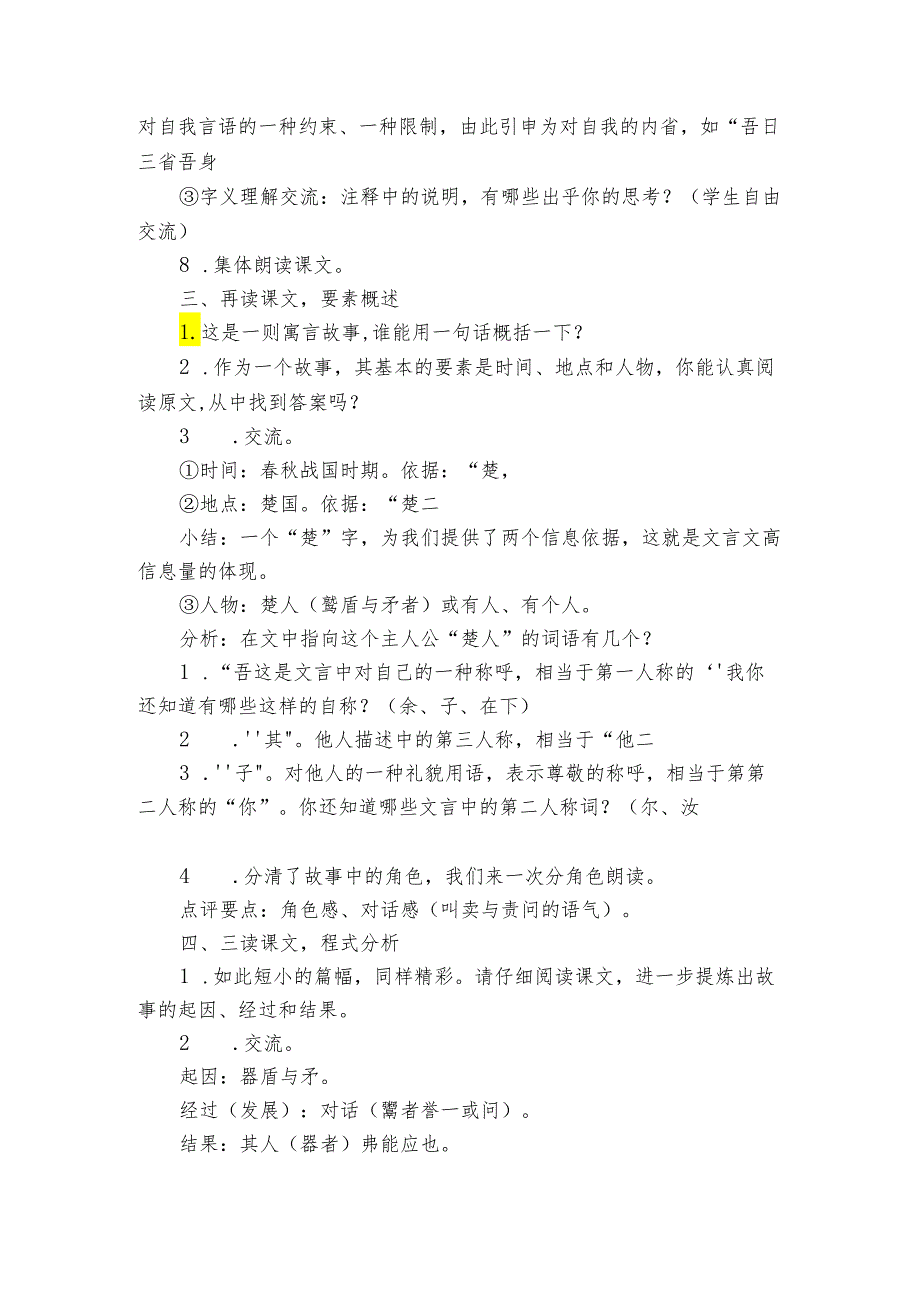 对自我言语的一种约束、一种限制，由此引申为对自我的内省，如“吾日
三省吾身
③字义理解交流：注释中的说明，有哪些出乎你的思考？（学生自由
交流）
8 .集体朗读课文。
三、再读课文，要素概述
1.这是一则寓言故事,谁能用一句话概括一下？
2 .作为一个故事，其基本的要素是时间、地点和人物，你能认真阅
读原文,从中找到答案吗？
3 .交流。
①时间：春秋战国时期。依据：“楚，
②地点：楚国。依据：“楚二
小结：一个“楚”字，为我们提供了两个信息依据，这就是文言文高
信息量的体现。
③人物：楚人（鹫盾与矛者）或有人、有个人。
分析：在文中指向这个主人公“楚人”的词语有几个？
1 .“吾这是文言中对自己的一种称呼，相当于第一人称的‘'我你
还知道有哪些这样的自称？（余、子、在下）
2 .''其"。他人描述中的第三人称，相当于“他二
3 .''子"。对他人的一种礼貌用语，表示尊敬的称呼，相当于第第
二人称的“你”。你还知道哪些文言中的第二人称词？（尔、汝
4 .分清了故事中的角色，我们来一次分角色朗读。
点评要点：角色感、对话感（叫卖与责问的语气）。
四、三读课文，程式分析
1 .如此短小的篇幅，同样精彩。请仔细阅读课文，进一步提炼出故
事的起因、经过和结果。
2 .交流。
起因：器盾与矛。
经过（发展）：对话（鬻者誉一或问）。
结果：其人（器者）弗能应也。